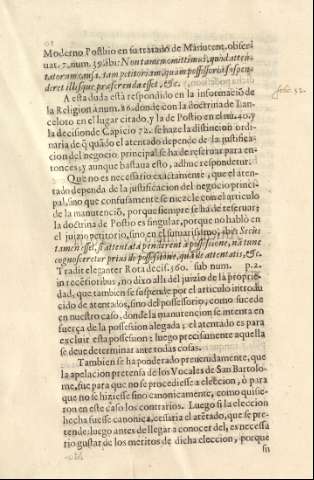 Moderno Postbio en su tratado de Manutent. obser-
uat. 7. num. 39. ibi: Non tamen omittimus, quòd atten-
tatorum causa, tam petitoriam, quàm possessoriã suspen-
deret illisque præferenda esset, &c.
A esta duda està respondido en la informació de
la Religion à num. 86. donde con la doctrina de Lan-
celoto en el lugar citado, y la de Postio en el nu. 40. y
la decision de Capicio 72. se haze la distinciõ ordi-
naria de q̃ quãdo el atentado depende de la justifica-
cion del negocio principal se ha de reseruar para en-
tonces: y aunque bastaua esto, adhuc respondetur:
Que no es necessario exactamente, que el aten-
tado dependa de la justificacion del negocio princi-
pal, sino que confusamente se mezcle con el articulo
de la manutenció, porque siempre se ha de reseruar;
la doctrina de Postio es singular, porque no hablò en
el juizio petitorio, sino en el sumarissimo, ibi: Secùs
tamen esset, si attentata penderent à possessione, nã tunc
cognosceretur priùs de possessione, quã de attentatis, &c.
Tradit eleganter Rota decis. 360. sub num. p. 2.
in recẽtioribus, no dixo alli del juizio de la propiedad
dad, que tambien se suspende por el articulo introdu-
cido de atentados, sino del possessorio, como sucede
en nuestro caso, donde la manutencion se intenta en
fuerça de la possession alegada; el atentado es para
excluir esta possession: luego precisamente aquella
se deue determinar ante todas cosas.
Tambien se ha ponderado preuenidamente, que
la apelacion pretensa de los Vocales de San Bartolo-
me, fue para que no se procediesse a eleccion, ò para
que no se hiziesse sino canonicamente, como quisie-
ron en este caso los contrarios. Luego si la eleccion
hecha fuesse canonica, cessaria el atẽtado, que se pre-
tende: luego antes de llegar a conocer del, es necessa-
rio gustar de los meritos de dicha eleccion, porque
si